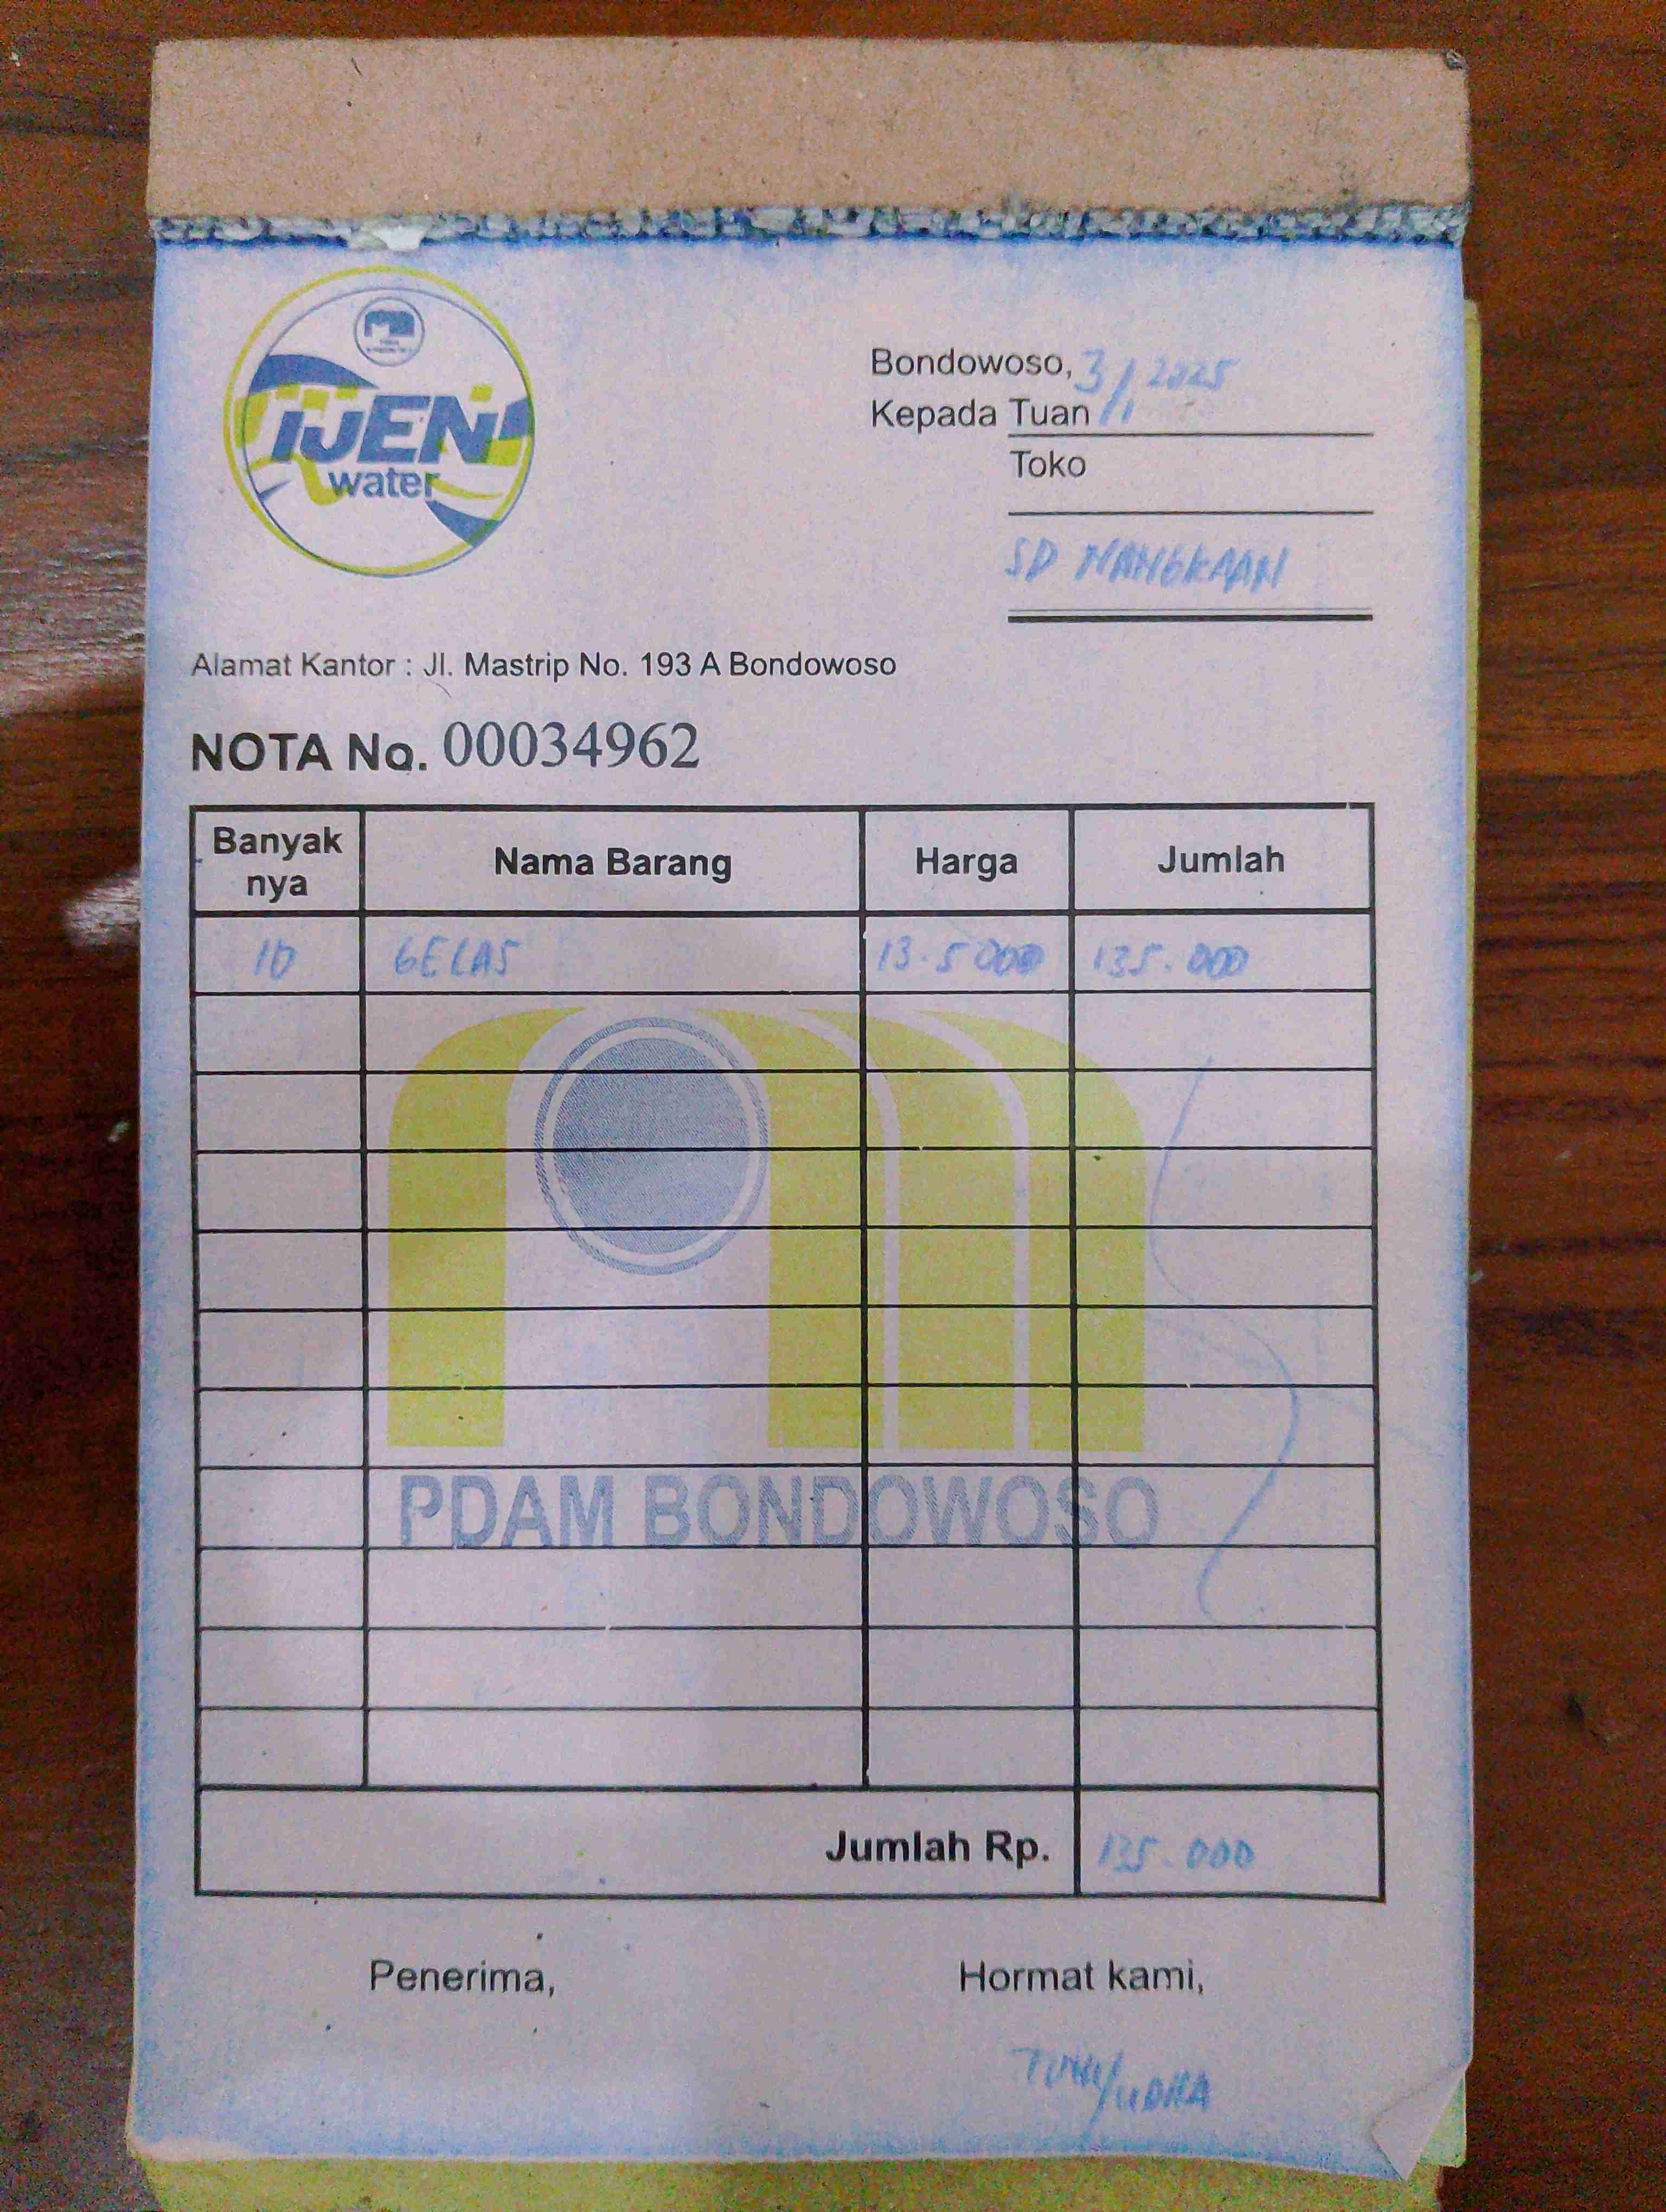 IJEN
water
Bondowoso, 3/1 2025
Kepada Tuan
Toko
SD NANGKAAN
Alamat Kantor : Jl. Mastrip No. 193 A Bondowoso
NOTA No. 00034962
Banyak nya Nama Barang Harga Jumlah
10 GELAS 13.5000 135.000
PDAM BONDOWOSO
Jumlah Rp. 135.000
Penerima, Hormat kami,